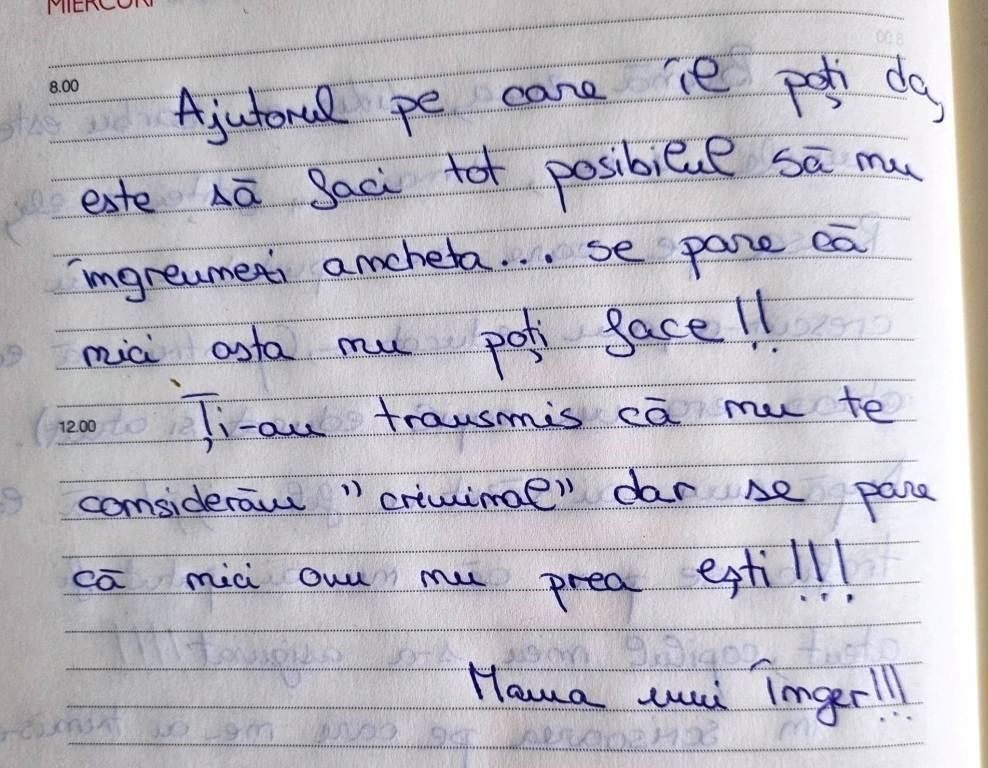 MIERCURI
8.00
Ajutorul pe care îl poți da,
este să faci tot posibilul să nu
îngreunezi ancheta... se pare că
nici asta nu poți face!!
12.00
Ți-au transmis că nu te
considerăm "criminal" dar se pare
că nici om nu prea ești!!!
Mama unui înger!!!